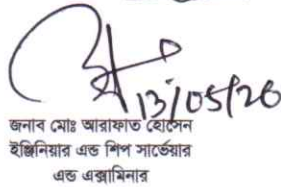 13/05/26
জনাব মোঃ আরাফাত হোসেন
ইঞ্জিনিয়ার এন্ড শিপ সার্ভেয়ার
এন্ড এক্সামিনার